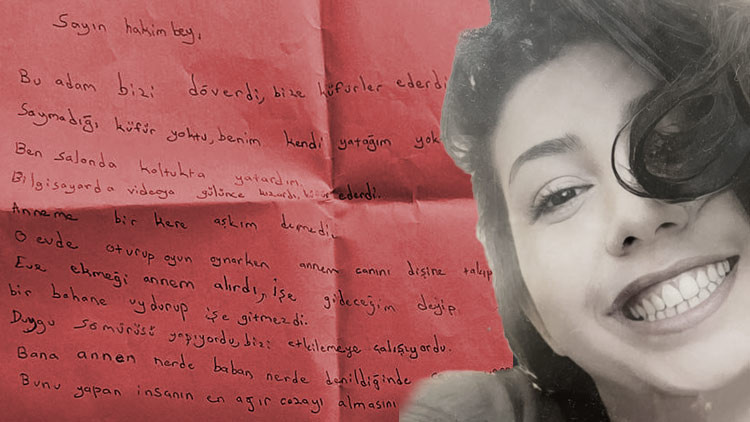 Sayın hakim bey,
Bu adam bizi döverdi, bize küfürler ederdi
Saymadığı küfür yoktu, benim kendi yatağım yok
Ben salonda koltukta yatardım.
Bilgisayarda videoya gülünce kızardı, küfür ederdi.
Anneme bir kere aşkım demedi,
O evde oturup oyun oynarken annem canını dişine takıp
Eve ekmeği annem alırdı, işe gideceğim deyip
bir bahane uydurup işe gitmezdi.
Duygu sömürüsü yapıyordu, bizi etkilemeye çalışıyordu.
Bana annen nerde baban nerde denildiğinde
Bunu yapan insanın en ağır cezayı almasını